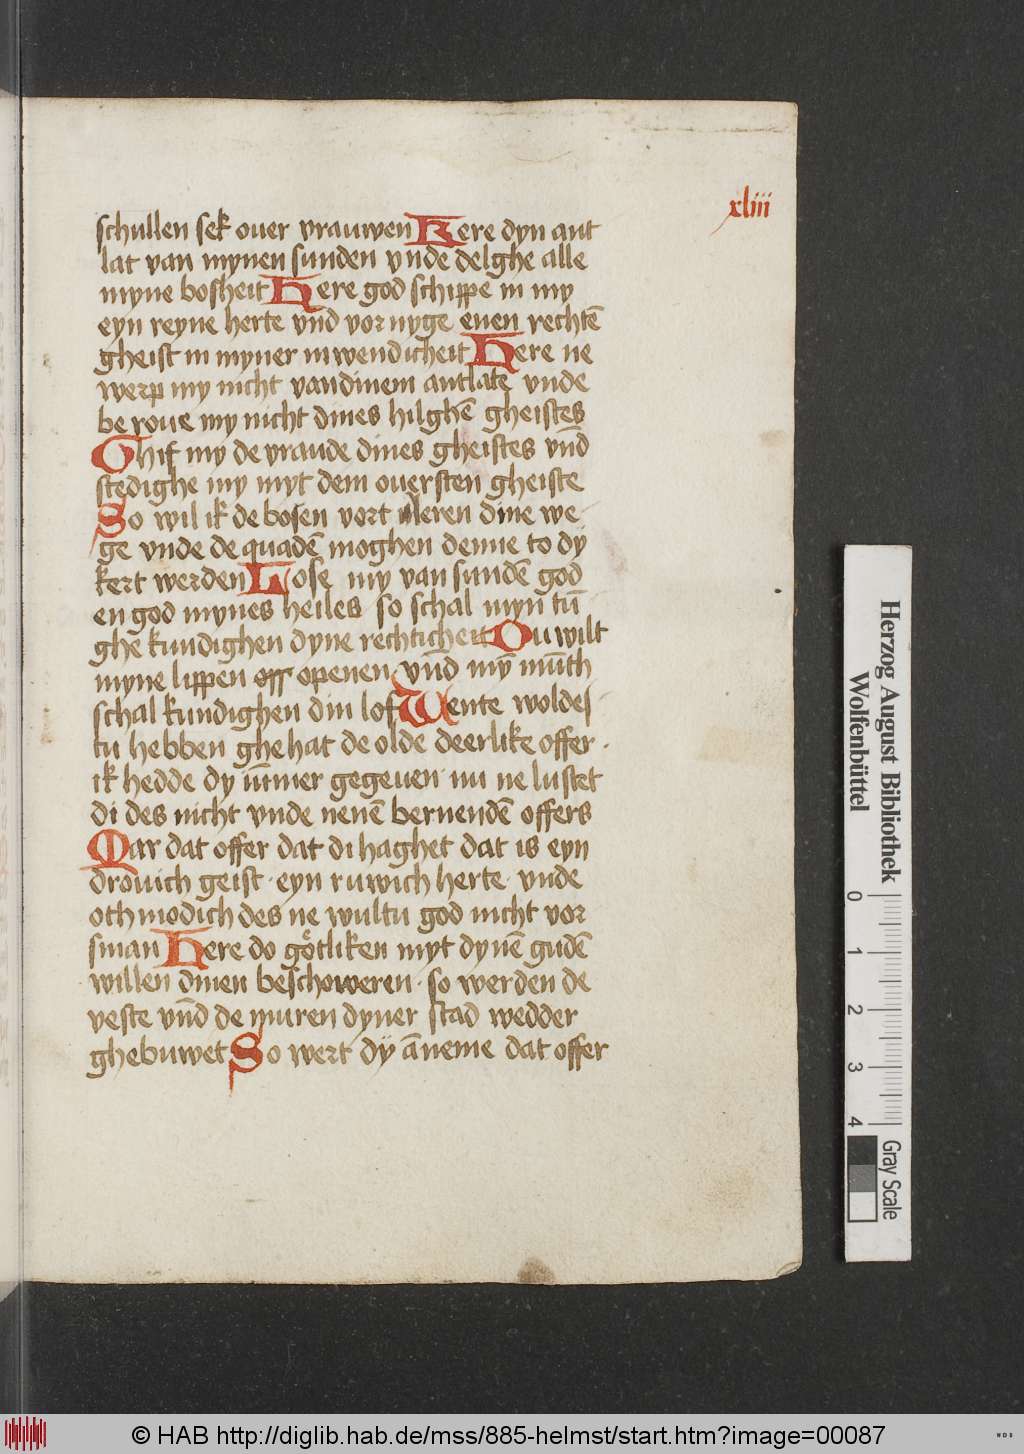 xliii
schullen sek ouer vrauwen Kere dyn ant
lat van mynen sunden vnde delghe alle
myne bosheit Here god schippē in my
eyn reyne herte vnd vornyge enen rechtē
gheist in myner inwendicheit Here ne
werp my nicht van dinem antlate vnde
beroue my nicht dines hilghē gheistes
Ghif my de vraude dines gheistes vn̄d
stedighe my myt dem ouersten gheiste
So wil ik de bosen vort leren dine we
ge vnde de quadē moghen denne to dy
kert werden Lose my van sundē god
en god mynes heiles so schal myn tū
ghe kundighen dyne rechticheit Du wilt
myne lippen openen vn̄d mȳ mūth
schal kundighen din lof Wente woldes
tu hebben ghehat de olde deerlike offer
ik hedde dy ūmer gegeuen nu ne lustet
di des nicht vnde nenē bernendē offers
Mar dat offer dat di haghet dat is eyn
drouich geist · eyn ruwich herte · vnde
othmodich des ne wultu god nicht vor
sman Here do götliken myt dynē gudē
willen dinen beschoweren · so werden de
veste vn̄d de muren dyner stad wedder
ghebuwet So wert dÿ āneme dat offer
Herzog August Bibliothek
Wolfenbüttel
0 1 2 3 4
Gray Scale
© HAB http://diglib.hab.de/mss/885-helmst/start.htm?image=00087